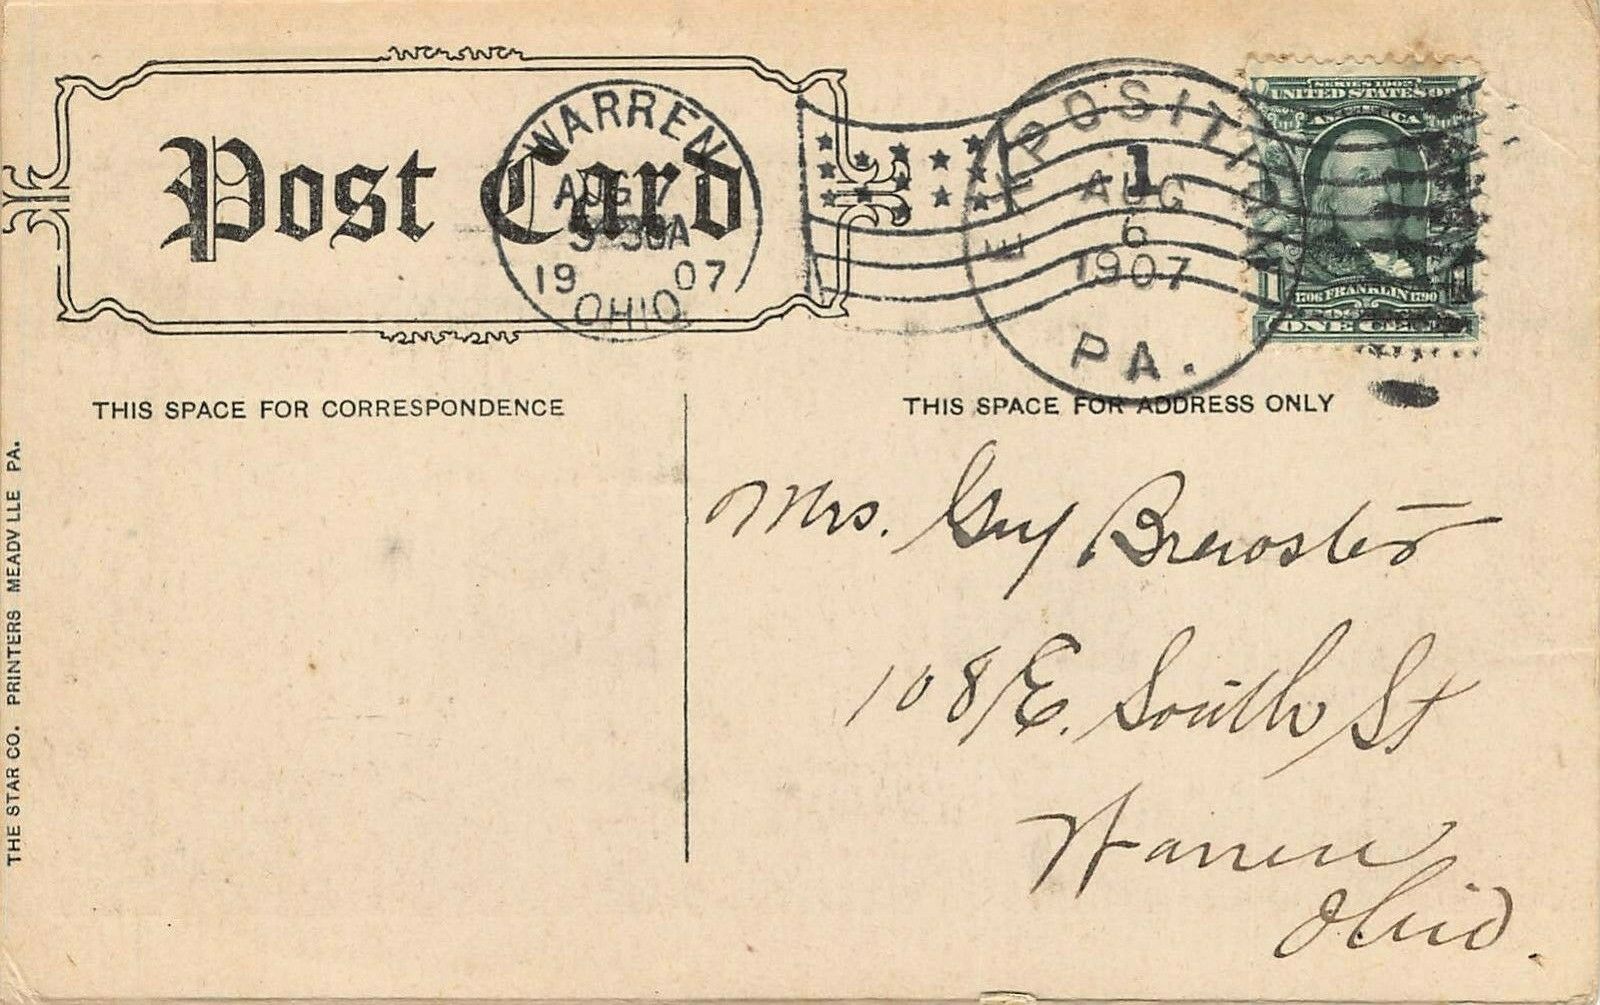 Post Card
WARREN
AUG 7
30A
19 07
OHIO
EXPOSITION
1
AUG
6
1907
PA.
SERIES 1902
UNITED STATES OF
AMERICA
1706 FRANKLIN 1790
ONE
THIS SPACE FOR CORRESPONDENCE
THIS SPACE FOR ADDRESS ONLY
Mrs. Guy Brewster
108 E. South St
Warren
Ohio.
THE STAR CO. PRINTERS MEADV LLE PA.